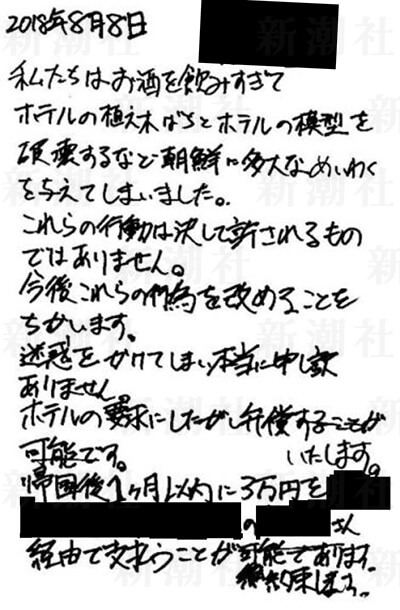 2018年8月8日
私たちはお酒を飲みすぎて
ホテルの植え木ばちとホテルの模型を
破壊するなど朝鮮に多大なめいわく
を与えてしまいました。
これらの行動は決して許されるもの
ではありません。
今後これらの行為を改めることを
ちかします。
迷惑をかけてしまい本当に申し訳
ありません。
ホテルの要求にしたがい弁償することが
可能です。 いたします。
帰国後1ヶ月以内に3万円を
の さん
経由で支払うことが可能であります。
約束します。
新潮社